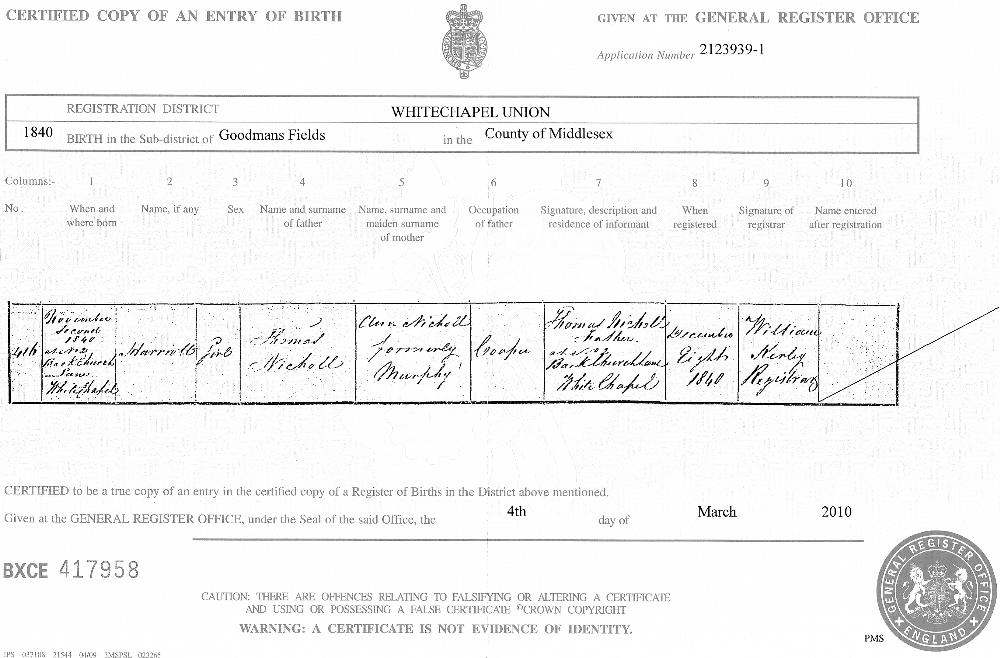 CERTIFIED COPY OF AN ENTRY OF BIRTH
GIVEN AT THE GENERAL REGISTER OFFICE
Application Number 2123939-1
REGISTRATION DISTRICT WHITECHAPEL UNION
1840 BIRTH in the Sub-district of Goodmans Fields in the County of Middlesex
Columns:- 1 2 3 4 5 6 7 8 9 10
No. When and where born Name, if any Sex Name and surname of father Name, surname and maiden surname of mother Occupation of father Signature, description and residence of informant When registered Signature of registrar Name entered after registration
416
November
Second
1840
Back Church
Lane
White Chapel
Harriott
Girl
Thomas
Nicholl
Ann Nicholl
formerly
Murphy
Cooper
Thomas Nicholl
Father
Back Church Lane
White Chapel
December
Eight
1840
William
Kerley
Registrar
CERTIFIED to be a true copy of an entry in the certified copy of a Register of Births in the District above mentioned.
Given at the GENERAL REGISTER OFFICE, under the Seal of the said Office, the 4th day of March 2010
BXCE 417958
CAUTION: THERE ARE OFFENCES RELATING TO FALSIFYING OR ALTERING A CERTIFICATE
AND USING OR POSSESSING A FALSE CERTIFICATE ©CROWN COPYRIGHT
WARNING: A CERTIFICATE IS NOT EVIDENCE OF IDENTITY.
GENERAL REGISTER OFFICE
ENGLAND
PMS